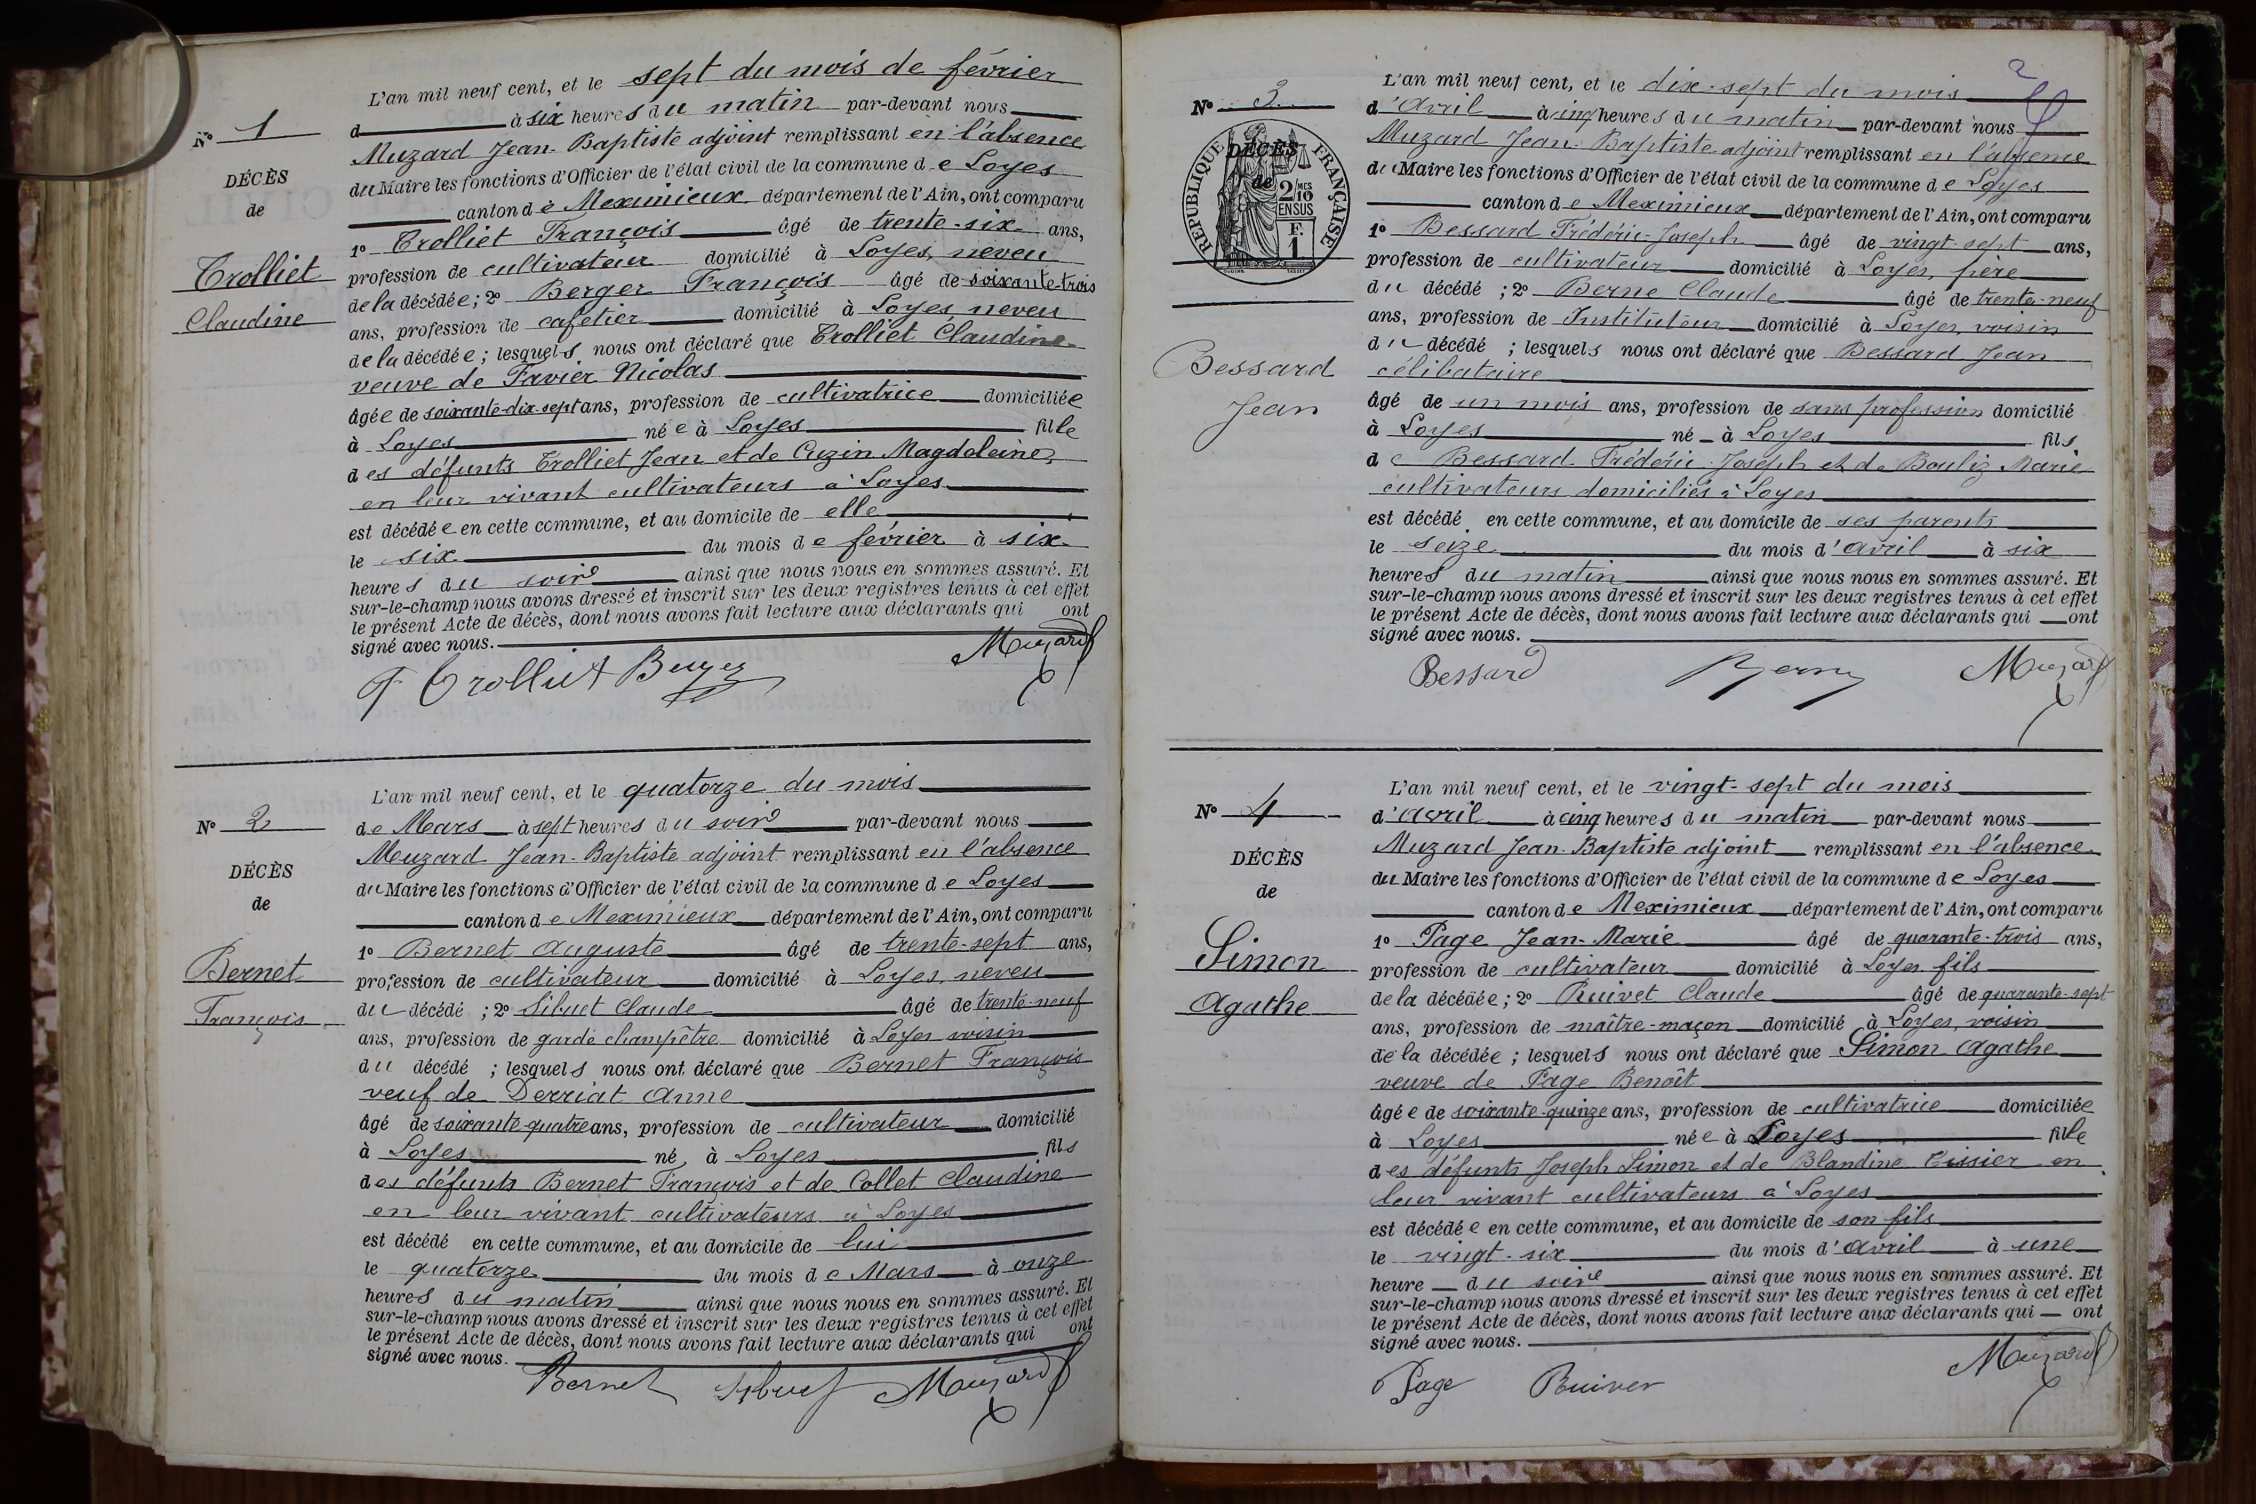 N° 1
DÉCÈS
de
Trolliet
Claudine
L'an mil neuf cent, et le sept du mois de février
d à six heures du matin par-devant nous
Muzard Jean-Baptiste adjoint remplissant en l'absence
du Maire les fonctions d'Officier de l'état civil de la commune de Loyes
canton de Meximieux département de l'Ain, ont comparu
1° Trolliet François âgé de trente-six ans,
profession de cultivateur domicilié à Loyes, neveu
de la décédée; 2° Berger François âgé de soixante-trois
ans, profession de cafetier domicilié à Loyes neveu
de la décédée; lesquels nous ont déclaré que Trolliet Claudine
veuve de Favier Nicolas
âgée de soixante-dix-sept ans, profession de cultivatrice domiciliée
à Loyes née à Loyes fille
des défunts Trolliet Jean et de Cuzin Magdeleine,
en leur vivant cultivateurs à Loyes
est décédée en cette commune, et au domicile de elle
le six du mois de février à six
heures du soir ainsi que nous nous en sommes assuré. Et
sur-le-champ nous avons dressé et inscrit sur les deux registres tenus à cet effet
le présent Acte de décès, dont nous avons fait lecture aux déclarants qui ont
signé avec nous.
F. Trolliet Muzard
N° 2
DÉCÈS
de
Bernet
François
L'an mil neuf cent, et le quatorze du mois
de Mars à sept heures du soir par-devant nous
Muzard Jean-Baptiste adjoint remplissant en l'absence
du Maire les fonctions d'Officier de l'état civil de la commune de Loyes
canton de Meximieux département de l'Ain, ont comparu
1° Bernet Auguste âgé de trente-sept ans,
profession de cultivateur domicilié à Loyes, neveu
du décédé; 2° Sibuet Claude âgé de trente-neuf
ans, profession de garde champêtre domicilié à Loyes voisin
du décédé; lesquels nous ont déclaré que Bernet François
veuf de Derriat Anne
âgé de soixante-quatre ans, profession de cultivateur domicilié
à Loyes né à Loyes fils
des défunts Bernet François et de Collet Claudine
en leur vivant cultivateurs à Loyes
est décédé en cette commune, et au domicile de lui
le quatorze du mois de Mars à onze
heures du matin ainsi que nous nous en sommes assuré. Et
sur-le-champ nous avons dressé et inscrit sur les deux registres tenus à cet effet
le présent Acte de décès, dont nous avons fait lecture aux déclarants qui ont
signé avec nous.
Bernet Sibuet Muzard
2
N° 3
RÉPUBLIQUE FRANÇAISE
DÉCÈS
de
2 MES 10
EN SUS
F. 1
Bessard
Jean
L'an mil neuf cent, et le dix-sept du mois
d'avril à cinq heures du matin par-devant nous
Muzard Jean-Baptiste adjoint remplissant en l'absence
du Maire les fonctions d'Officier de l'état civil de la commune de Loyes
canton de Meximieux département de l'Ain, ont comparu
1° Bessard Frédéric-Joseph âgé de vingt-sept ans,
profession de cultivateur domicilié à Loyes, père
du décédé; 2° Berne Claude âgé de trente-neuf
ans, profession de Instituteur domicilié à Loyes, voisin
du décédé; lesquels nous ont déclaré que Bessard Jean
célibataire
âgé de un mois ans, profession de sans profession domicilié
à Loyes né à Loyes fils
de Bessard Frédéric-Joseph et de Bouliz Marie
cultivateurs domiciliés à Loyes
est décédé en cette commune, et au domicile de ses parents
le seize du mois d'avril à six
heures du matin ainsi que nous nous en sommes assuré. Et
sur-le-champ nous avons dressé et inscrit sur les deux registres tenus à cet effet
le présent Acte de décès, dont nous avons fait lecture aux déclarants qui ont
signé avec nous.
Bessard Berne Muzard
N° 4
DÉCÈS
de
Simon
Agathe
L'an mil neuf cent, et le vingt-sept du mois
d'avril à cinq heures du matin par-devant nous
Muzard Jean-Baptiste adjoint remplissant en l'absence
du Maire les fonctions d'Officier de l'état civil de la commune de Loyes
canton de Meximieux département de l'Ain, ont comparu
1° Page Jean-Marie âgé de quarante-trois ans,
profession de cultivateur domicilié à Loyes fils
de la décédée; 2° Ruivet Claude âgé de quarante-sept
ans, profession de maître-maçon domicilié à Loyes, voisin
de la décédée; lesquels nous ont déclaré que Simon Agathe
veuve de Page Benoît
âgée de soixante-quinze ans, profession de cultivatrice domiciliée
à Loyes née à Loyes fille
des défunts Joseph Simon et de Blandine Tissier en
leur vivant cultivateurs à Loyes
est décédée en cette commune, et au domicile de son fils
le vingt-six du mois d'avril à une
heure du soir ainsi que nous nous en sommes assuré. Et
sur-le-champ nous avons dressé et inscrit sur les deux registres tenus à cet effet
le présent Acte de décès, dont nous avons fait lecture aux déclarants qui ont
signé avec nous.
Page Ruivet Muzard